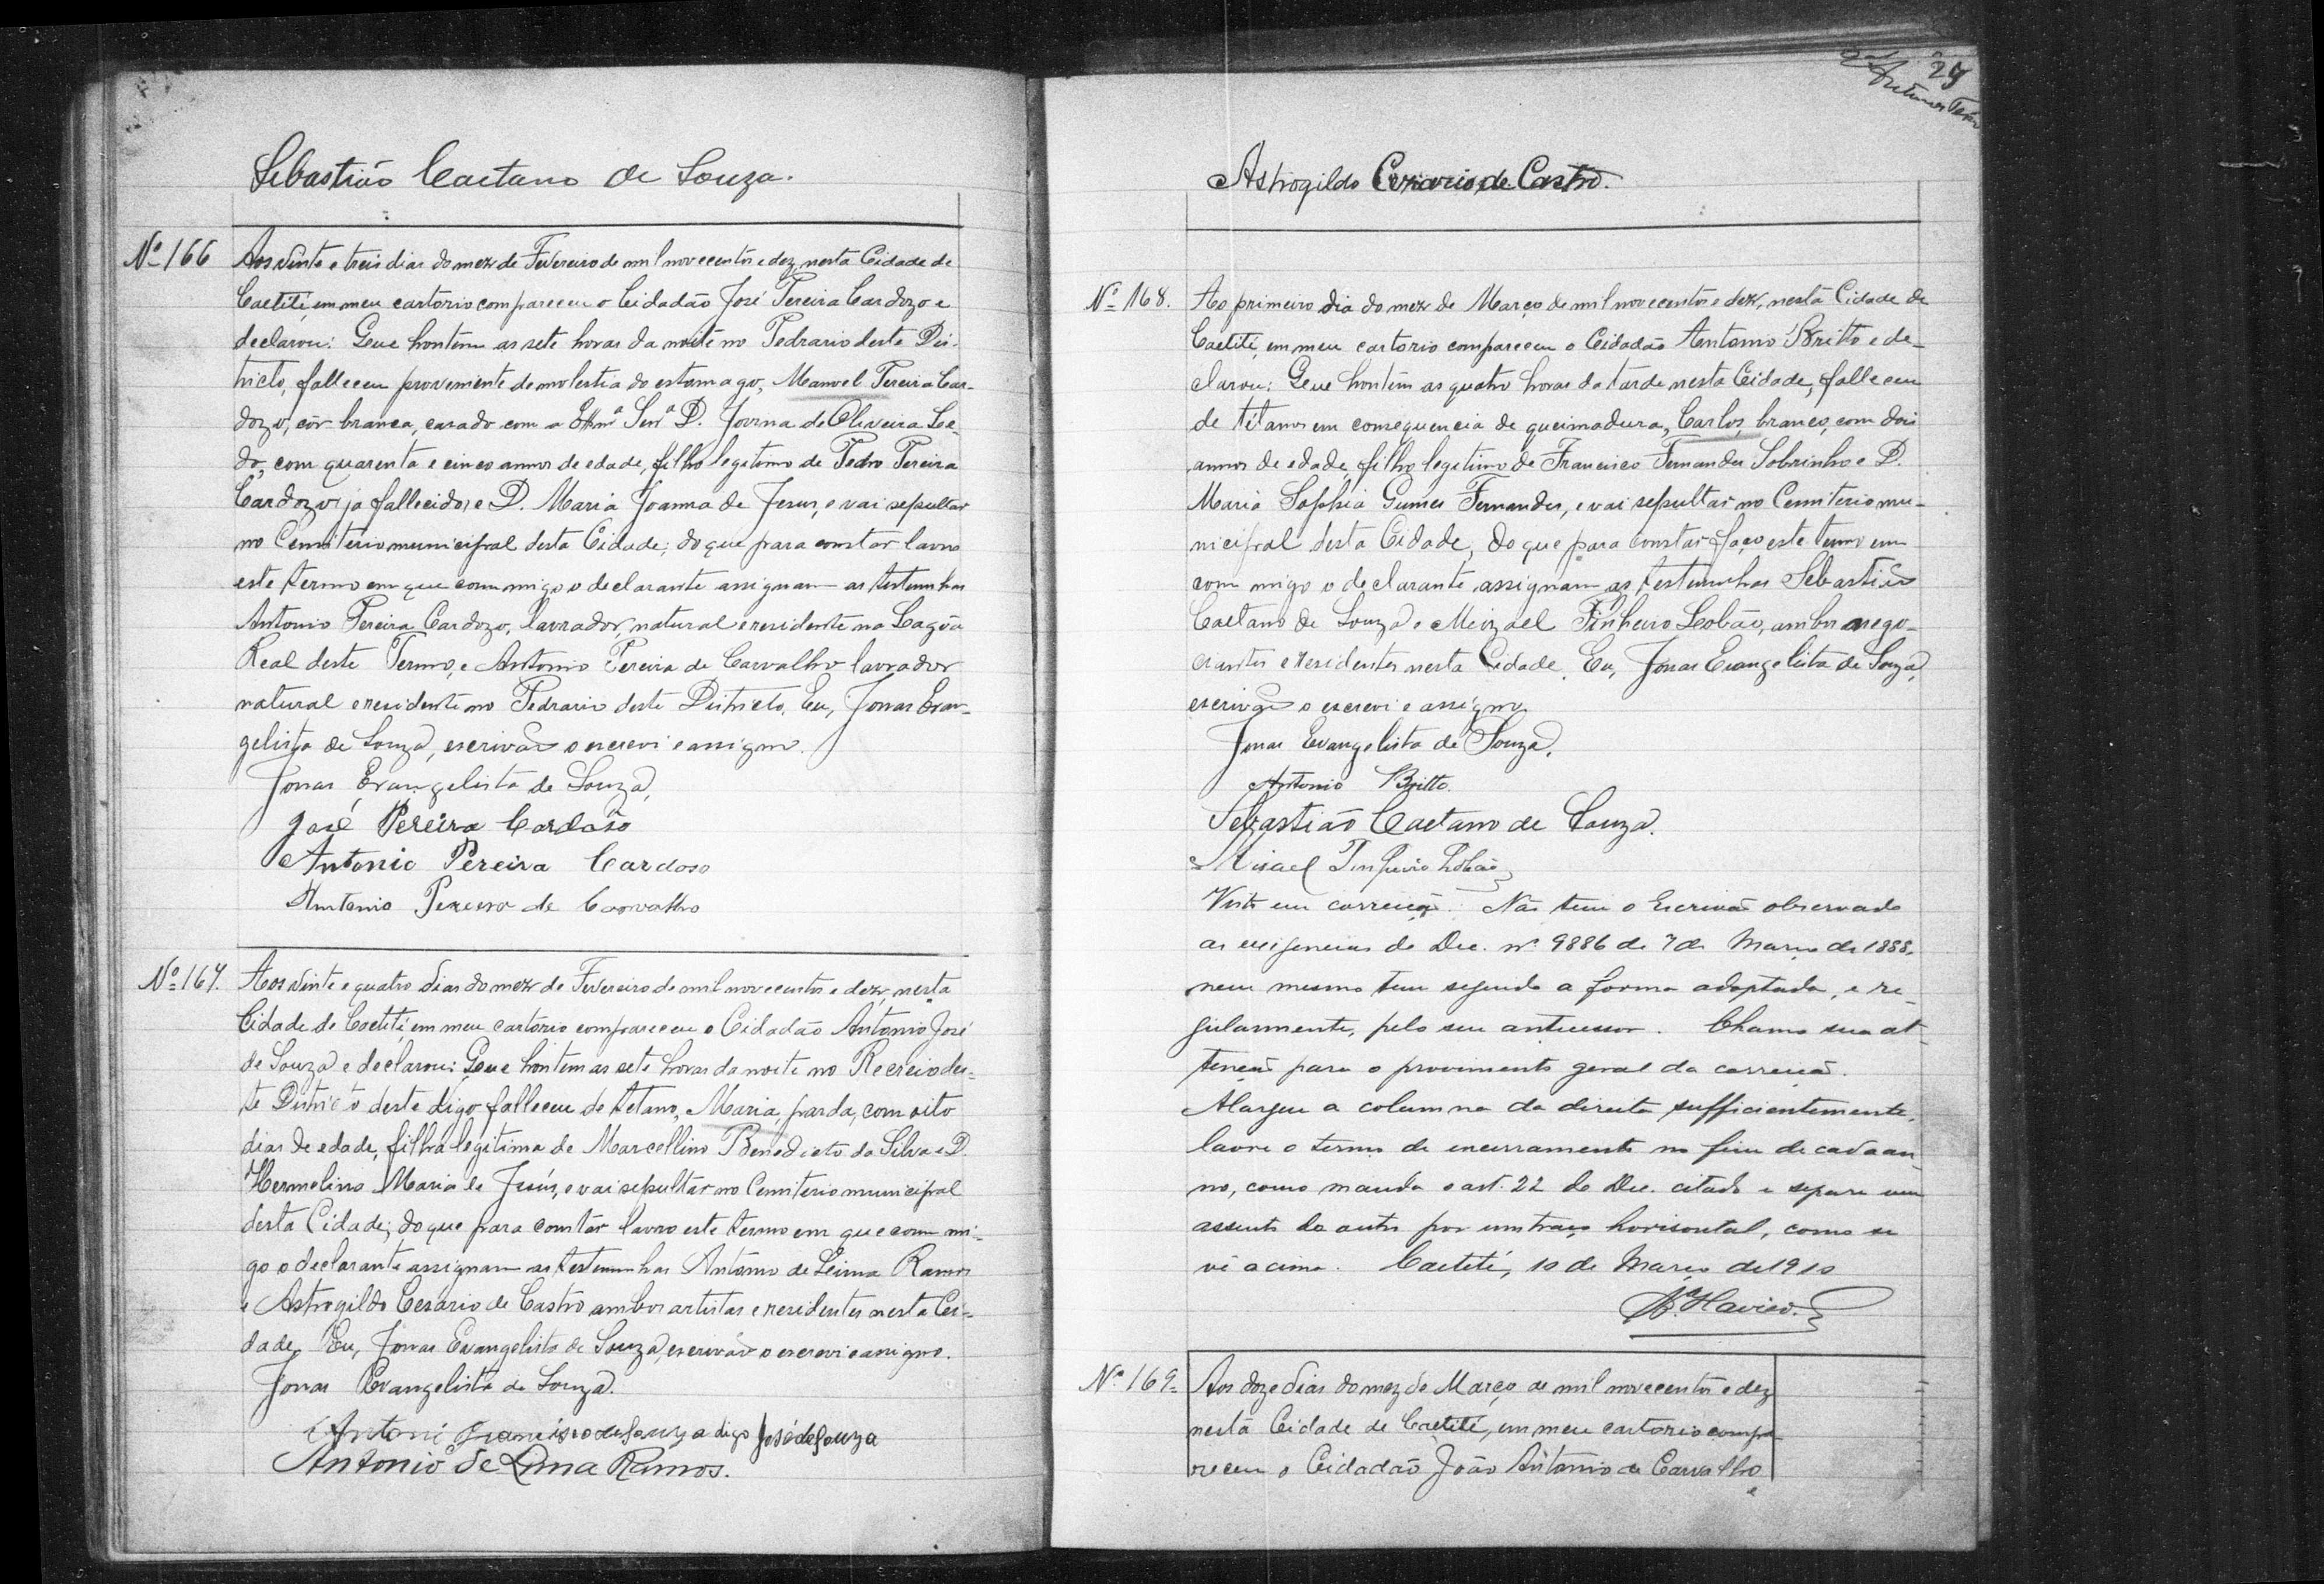 Sebastião Caetano de Souza.
Nº 166
Aos vinte e treis dias do mez de Fevereiro de mil novecentos e dez, nesta Cidade de
Caetité, em meu cartorio compareceu o Cidadão José Pereira Cardozo e
declarou: Que hontem as sete horas da noite no Pedrario deste Dis-
tricto, falleceu proveniente de molestia do estomago, Manoel Pereira Car-
dozo, côr branca, casado com a Exmª Senª D. Jovina de Oliveira Le-
do, com quarenta e cinco annos de edade, filho legitimo de Pedro Pereira
Cardozo ja fallecido, e D. Maria Joanna de Jesus, e vai sepultar
no Cemiterio municipal desta Cidade; do que para constar lavro
este termo em que commigo o declarante assignam as testemunhas
Antonio Pereira Cardozo, lavrador, natural e residente na Lagôa
Real deste Termo, e Antonio Pereira de Carvalho lavrador
natural e residente no Pedrario deste Districto. Eu, Jonas Evan-
gelista de Souza, escrivão o escrevi e assigno.
Jonas Evangelista de Souza,
José Pereira Cardoso
Antonio Pereira Cardoso
Antonio Pereira de Carvalho
Nº 167.
Aos vinte e quatro dias do mez de Fevereiro de mil novecentos e dez, nesta
Cidade de Caetité, em meu cartorio compareceu o Cidadão Antonio José
de Souza e declarou: Que hontem as sete horas da noite no Recreio des-
te Districto deste digo falleceu de tetano, Maria, parda, com oito
dias de edade, filha legitima de Marcellino Benedicto da Silva e D.
Hermelina Maria de Jesús, e vai sepultar no Cemiterio municipal
desta Cidade; do que para constar lavro este termo em que com mi-
go o declarante assignam as testemunhas Antonio de Leima Ramos
e Astrogildo Cesario de Castro ambos artistas e residentes nesta Ci-
dade. Eu, Jonas Evangelista de Souza, escrivão o escrevi e assigno.
Jonas Evangelista de Souza.
Antoni Francisco de Souza digo José de Souza
Antonio de Lima Ramos.
27
Astrogildo Cezario de Castro.
Nº 168.
Ao primeiro dia do mez de Março de mil novecentos e dez, nesta Cidade de
Caetité, em meu cartorio compareceu o Cidadão Antonio Britto e de-
clarou: Que hontem as quatro horas da tarde nesta Cidade, falleceu
de tétanos em consequencia de queimadura, Carlos, branco, com dois
annos de edade, filho legitimo de Francisco Fernandes Sobrinho e D.
Maria Sophia Gumes Fernandes, e vai sepultar no Cemiterio mu-
nicipal desta Cidade, do que para constar faço este termo em
com migo o declarante assignam as testemunhas Sebastião
Caetano de Souza e Mizael Pinheiro Lobão, ambos nego-
ciantes e residentes nesta Cidade. Eu, Jonas Evangelista de Souza,
escrivão o escrevi e assigno.
Jonas Evangelista de Souza.
Antonio Britto.
Sebastião Caetano de Souza.
Misael Pinheiro Lobão
Visto em correição. Não tem o Escrivão observado
as exigencias do Dec. nº 9886 de 7 de Março de 1888,
nem mesmo tem seguido a forma adoptada, e re-
gularmente, pelo seu antecessor. Chamo sua at-
tenção para o provimento geral da correição.
Alargue a columna da direita sufficientemente,
lavre o termo de encerramento no fim de cada an-
no, como manda o art. 22 do Dec. citado e separe um
assento do outro por um traço horisontal, como se
vê acima. Caetité, 10 de Março de 1910
Nº 169.
Aos doze dias do mez de Março de mil novecentos e dez
nesta Cidade de Caetité, em meu cartorio compa-
receu o Cidadão João Antonio de Carvalho
e